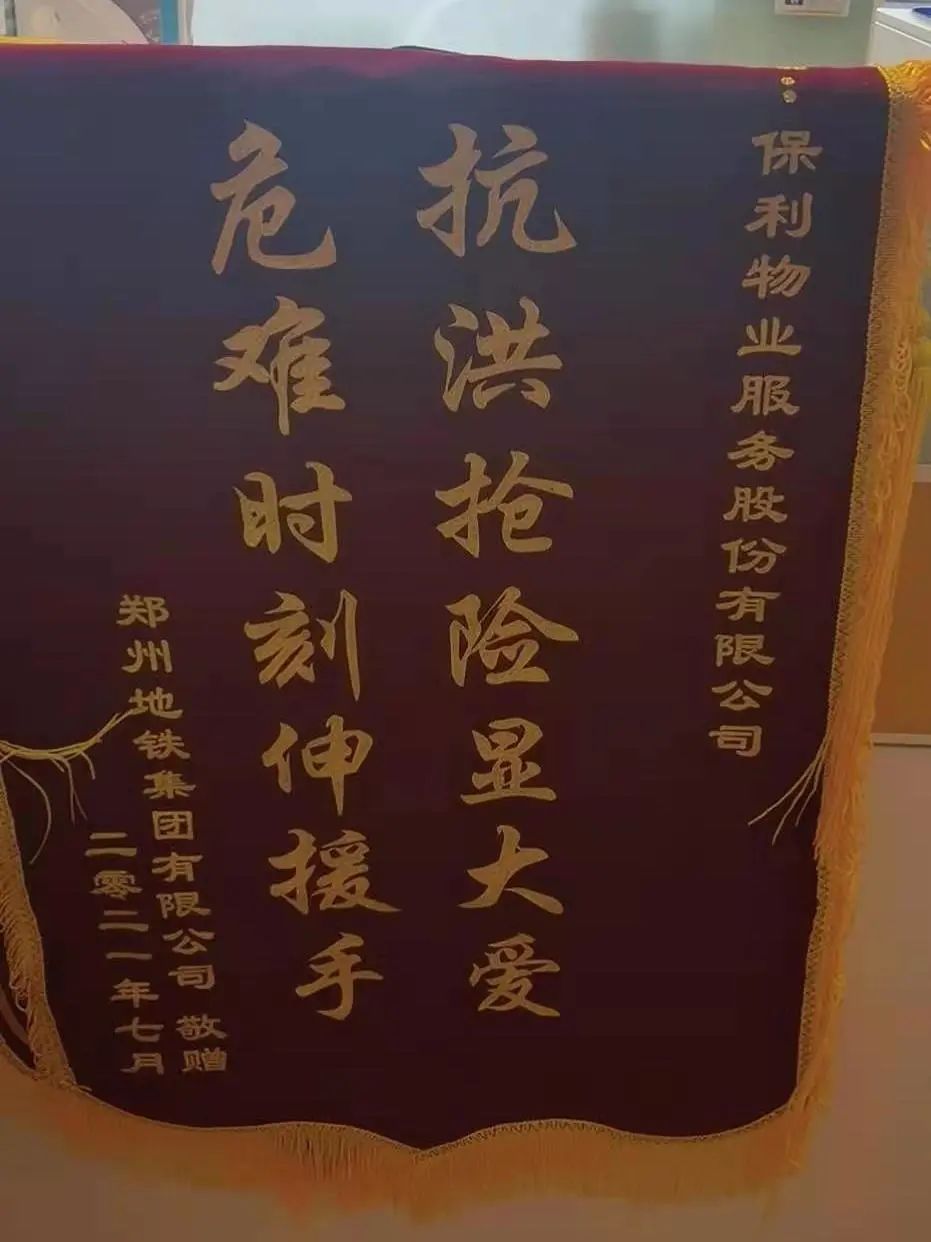 保利物业服务股份有限公司
抗洪抢险显大爱
危难时刻伸援手
郑州地铁集团有限公司 敬赠
二零二一年七月